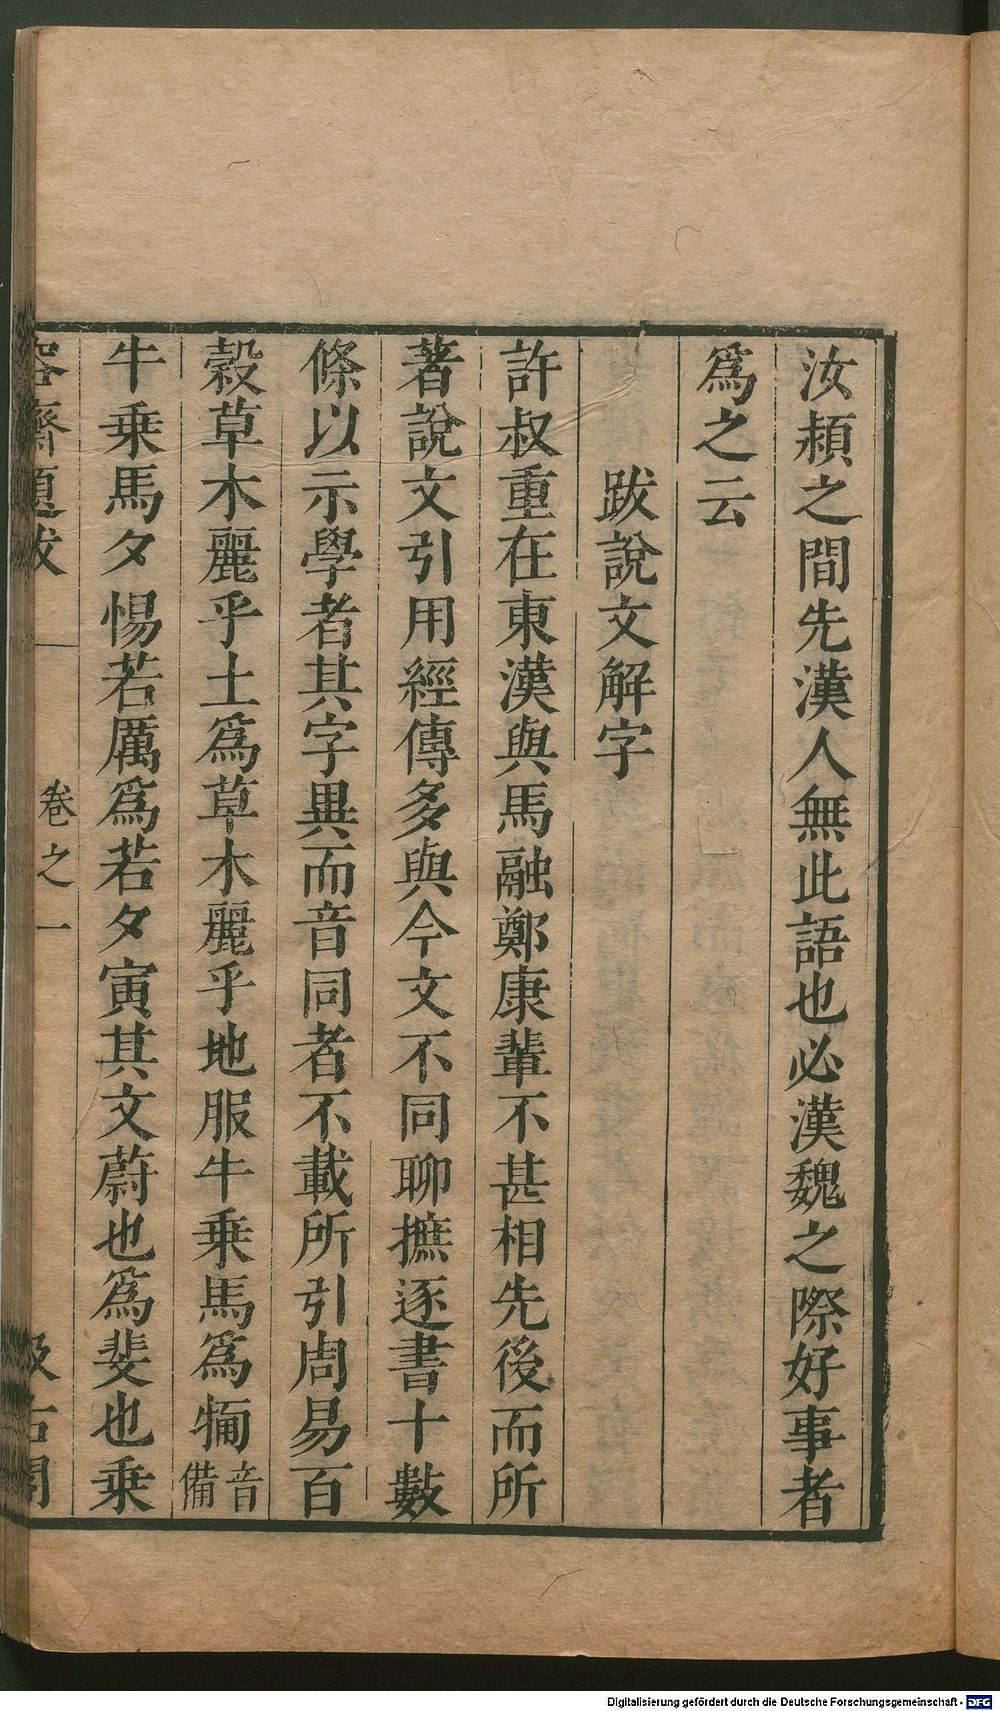 汝潁之間先漢人無此語也必漢魏之際好事者
爲之云
跋說文解字
許叔重在東漢與馬融鄭康輩不甚相先後而所
著說文引用經傳多與今文不同聊摭逐書十數
條以示學者其字異而音同者不載所引周易百
穀草木麗乎土爲草木麗乎地服牛乗馬爲犕音備
牛乗馬夕惕若厲爲若夕寅其文蔚也爲斐也乗
容齋題跋 卷之一 汲古閣
Digitalisierung gefördert durch die Deutsche Forschungsgemeinschaft - DFG